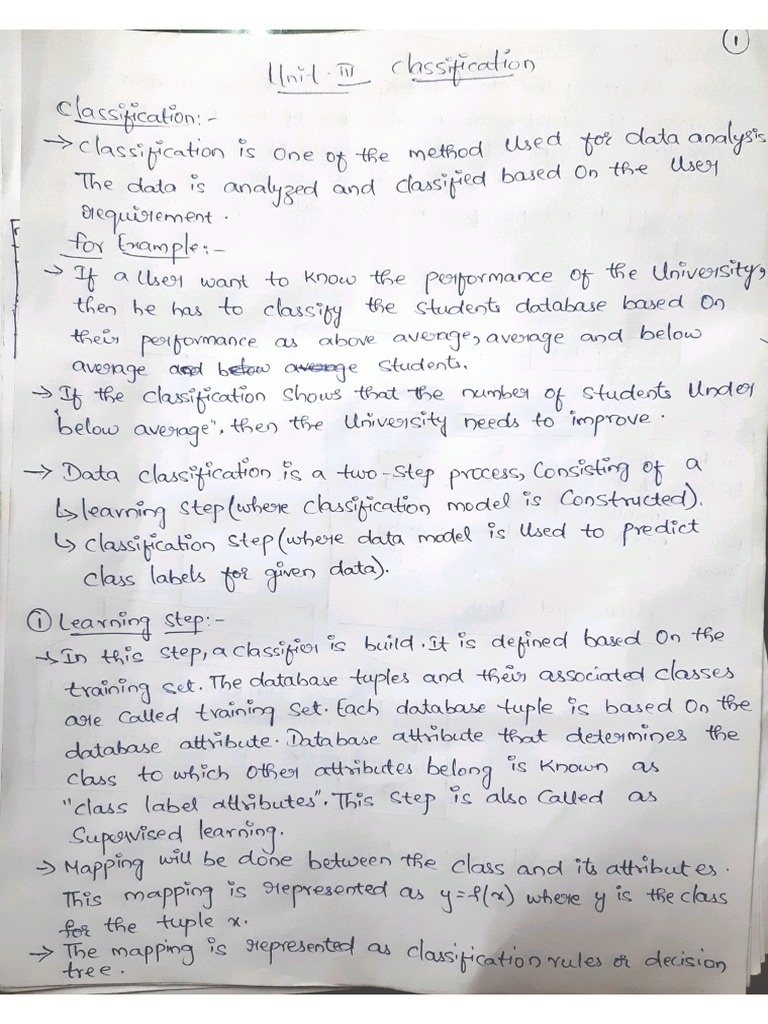 1
Unit-III Classification
Classification:-
→ Classification is one of the method used for data analysis
The data is analyzed and classified based on the user
requirement.
for Example:-
→ If a user want to know the performance of the University,
then he has to classify the students database based on
their performance as above average, average and below
average and below average students.
→ If the classification shows that the number of students under
"below average", then the University needs to improve.
→ Data classification is a two-step process, consisting of a
↳ learning step (where classification model is constructed).
↳ classification step (where data model is used to predict
class labels for given data).
① Learning step:-
→ In this step, a classifier is build. It is defined based on the
training set. The database tuples and their associated classes
are called training set. Each database tuple is based on the
database attribute. Database attribute that determines the
class to which other attributes belong is known as
"class label attributes". This step is also called as
Supervised learning.
→ Mapping will be done between the class and its attributes.
This mapping is represented as y=f(x) where y is the class
for the tuple x.
→ The mapping is represented as classification rules or decision
tree.